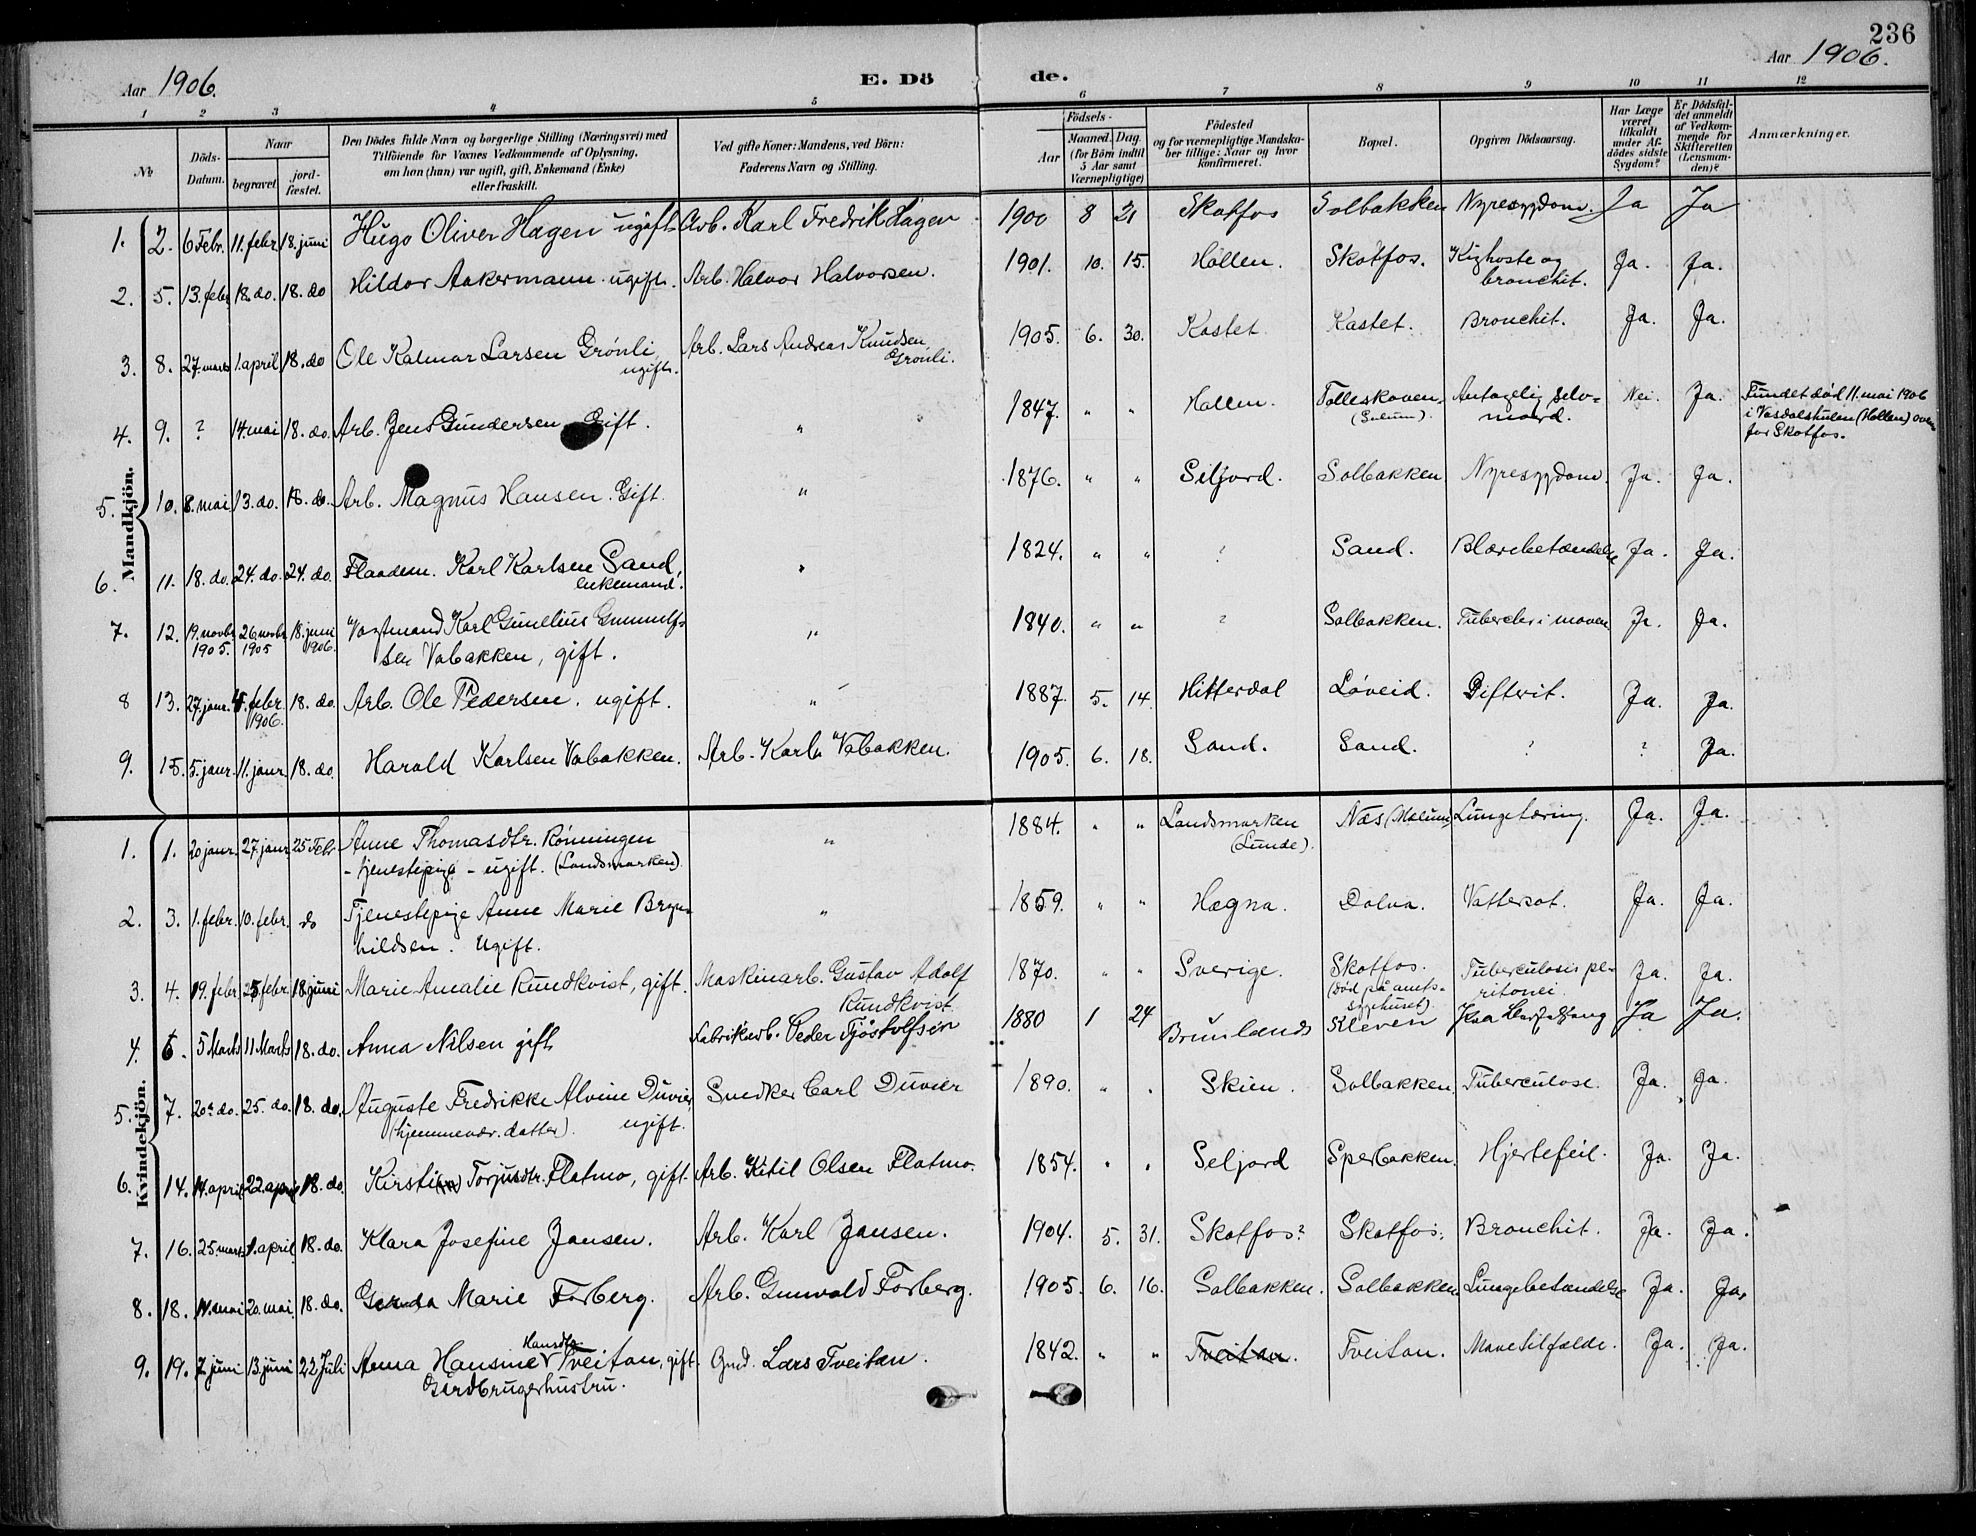 236
Aar 1906. E. Dö de. Aar 1906.
1 2 3 4 5 6 7 8 9 10 11 12
№ Döds-Datum. Naar begravet jord-fæstet. Den Dödes fulde Navn og borgerlige Stilling (Næringsvei) med Tilföiende for Voxnes Vedkommende af Oplysning, om hon (han) var ugift, gift, Enkemand (Enke) eller fraskilt. Ved gifte Koner: Mandens, ved Börn: Faderens Navn og Stilling. Födsels- Aar Maaned. Dag. (for Börn indtil 5 Aar samt Værnepligtige) Födested og for værnepligtige Mandskaber tillige: Naar og hvor konfirmeret. Bopæl. Opgiven Dödsaarsag. Har Læge været tilkaldt under Afdödes sidste Sygdom? Er Dödsfaldet anmeldt af Vedkommende for Skifteretten (Lensmanden)? Anmærkninger.
Mandkjön.
1. 2. 6 Febr. 11. febr. 18. juni Hugo Oliver Hagen ugift Arb. Karl Fredrik Hagen 1900 8 21 Skotfos Solbakken Nyresygdom. Ja Ja
2. 5. 13. febr. 18. do. 18. do Hildor Aakermann ugift. Arb. Halvor Halvorsen. 1901. 10. 15. Hollen. Skotfos. Kighoste og
bronchit. Ja. Ja.
3. 8. 27. marts 1. april 18. do Ole Kalmar Larsen Grönli
ugift. Arb. Lars Andreas Knudsen
Grönli. 1905. 6. 30. Kastet. Kastet. Bronchit. Ja. Ja.
4. 9. ? 14. mai 18. do. Arb. Jens Gundersen Gift. " 1847. " " Hollen. Tolleskoven.
(Solum). Antagelig selv-
mord. Nei. Ja. Fundet død 11. mai 1906
i (Hollen) oven
for Skotfos.
5. 10. 8. mai 13. do. 18. do. Arb. Magnus Hansen. Gift. " 1876. " " Siljord. Solbakken Nyresygdom. Ja. Ja.
6. 11. 18. do. 24. do. 24. do. Flaadem. Karl Karlsen Sand,
enkemand. " 1824. " " ? Sand. Blærebetændelse Ja. Ja.
7. 12. 19. novbr. 1905. 26. novbr. 1905 18. juni 1906. Vagtmand Karl Gunelius Gunnulf-
sen Vabakken, gift. " 1840. " " ? Solbakken. Tubercler i maven Ja. Ja.
8 13. 27. janr. 4. febr. 1906. 18. do. Arb. Ole Pedersen. ugift. " 1887. 5. 14. Hitterdal Løveid. Diftirit. Ja. Ja.
9. 15. 5. janr. 11. janr. 18. do. Harald Karlsen Vabakken. Arb. Karl Vabakken. 1905. 6. 18. Sand. Sand. ? ? Ja.
Kvindekjön.
1. 1. 20 janr. 27. janr. 25 Febr. Anne Thomasdtr. Rønningen
- tjenestepige - ugift. (Landsmarken). " 1884. " " Landsmarken
(Lunde). Næs (Mælum) Lungetæring. Ja. Ja.
2. 3. 1. febr. 10. febr. do Tjenestepige Anne Marie Bryn-
hildsen. Ugift. " 1859. " " Hægna. Dolva. Vattersot. Ja. Ja.
3. 4. 19. febr. 25. febr. 18. juni Marie Amalie Rundkvist, gift. Maskinarb. Gustav Adolf
Rundkvist. 1870. " " Sverige. Skotfos.
(død på amts-
sygehuset). Tuberculosis pe-
ritonei. Ja. Ja.
4. 6. 5 Marts 11 Marts 18. do. Anna Nilsen gift Fabrikarb. Peder Tjöstolfsen 1880 1 24 Brunlanes Kleven Ja Ja.
5. 7. 20. do. 25. do. 18. do. Auguste Fredrikke Alvine Duvier,
(hjemmevær. datter). ugift. Snedker Carl Duvier 1890. " " Skien. Solbakken. Tuberculose. Ja. Ja.
6. 14. 14. april 22. april 18. do. Kirsti Torjusdtr. Flatmo, gift. Arb. Kitil Olsen Flatmo. 1854. " " Seljord Sperbakken. Hjertefeil. Ja. Ja.
7. 16. 25. marts 1. april 18. do. Klara Josefine Jansen. Arb. Karl Jansen. 1904. 5. 31. Skotfos? Skotfos. Bronchit. Ja. Ja.
8. 18. 11. mai 20. mai 18. do. Gerda Marie Forberg. Arb. Gunvald Forberg. 1905. 6. 16. Solbakken. Solbakken. Lungebetændelse Ja. Ja.
9. 19. 7. juni 13. juni 22 Juli Anna Hansine Hansdtr. Tveitan, gift.
Gårdbrugerhustru. Gmd. Lars Tveitan. 1842. " " Tveitan. Tveitan. Mavetilfælde. Ja. Ja.